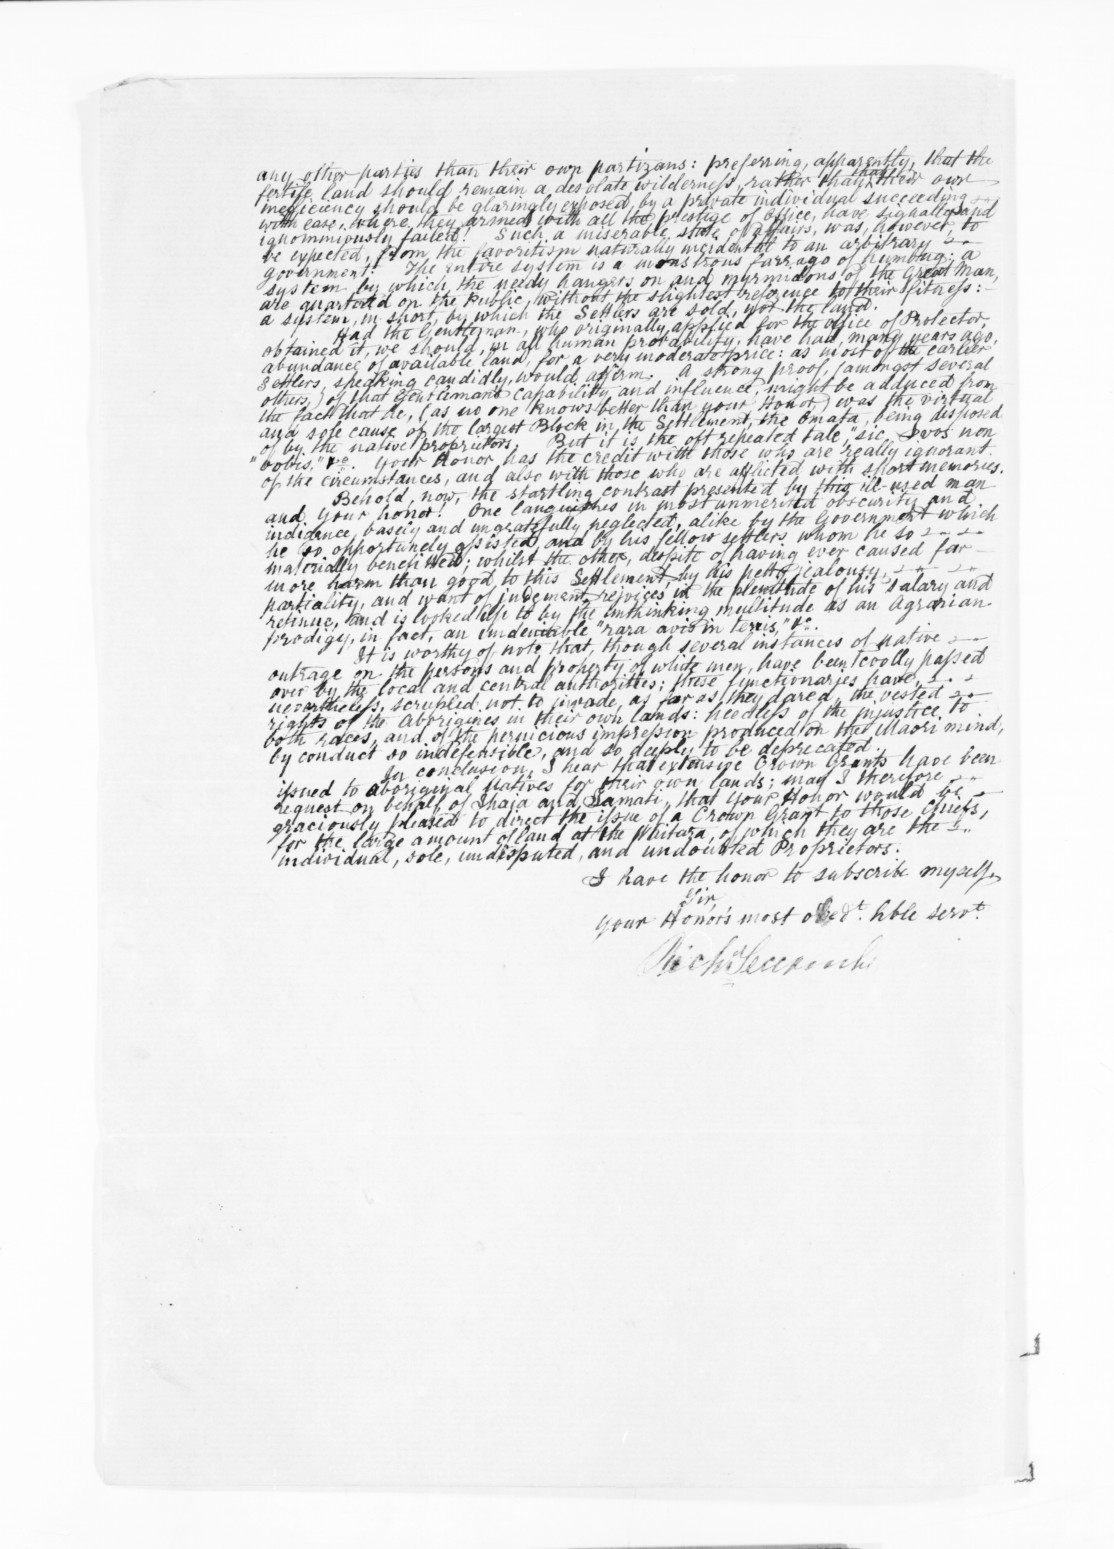 any other parties than their own partizans: preferring, apparently, that the
fertile land should remain a desolate wilderness, rather than that their own
inefficency should be glaringly exposed, by a private individual succeeding
with ease, where they, armed with all the prestige of Office, have signally and
ignominiously failed! Such a miserable state of affairs, was, however, to
be expected, from the favoritism naturally incidental to an arbitrary
government! The entire system is a monstrous farrago of humbug; a
system by which, the needy hangers on and myrmidons of the Great Man,
are quartered on the Public, without the slightest reference to their fitness:
a system, in short, by which the Settlers are sold, not the land.
Had the Gentleman, who originally applied for the office of Protector,
obtained it, we should, in all human probability, have had, many years ago,
abundance of available land, for a very moderate price: as most of the earlier
Settlers, speaking candidly, would affirm. A strong proof, (amongst several
others,) of that Gentleman's capability and influence, might be adduced from
the fact that he, (as no one knows better than your Honor,) was the virtual
and sole cause of the largest Block in the Settlement, the Omata, being disposed
of by the native proprietors. But it is the oft repeated tale, "sic vos non
"vobis," &c. Your Honor has the credit with those who are really ignorant
of the circumstances, and also with those who are afflicted with short memories.
Behold, now, the startling contrast presented by this ill-used man
and your honor! One languishes in most unmerited obscurity and
indigence, basely and ungratefully neglected, alike by the Government which
he so opportunely assisted and by his fellow settlers whom he so
materially benefitted; whilst the other, despite of having ever caused far
more harm than good, to this Settlement, by his petty jealousy,
partiality, and want of judgment, rejoices in the plenitude of his salary and
retinue, and is looked up to by the unthinking multitude as an Agrarian
prodigy, in fact, an undeniable "rara avis in terris," &c.
It is worthy of note that, though several instances of native
outrage on the persons and property of white men, have been coolly passed
over by the local and central authorities; these functionaries have,
nevertheless, scrupled not to invade, as far as they dared, the vested
rights of the Aborigines in their own lands: heedless of the injustice to
both races, and of the pernicious impression produced on the Maori mind,
by conduct so indefensible, and so deeply to be deprecated.
In conclusion, I hear that extensive Crown Grants have been
issued to aboriginal natives for their own lands; may I therefore
request on behalf of Ihaia and Tamati, that your Honor would be
graciously pleased to direct the issue of a Crown Grant to those Chiefs,
for the large amount of land at the Waitara, of which they are the
individual, sole, undisputed, and undoubted Proprietors.
I have the honor to subscribe myself,
Sir,
Your Honor's most obedt. hble servt.
Richd